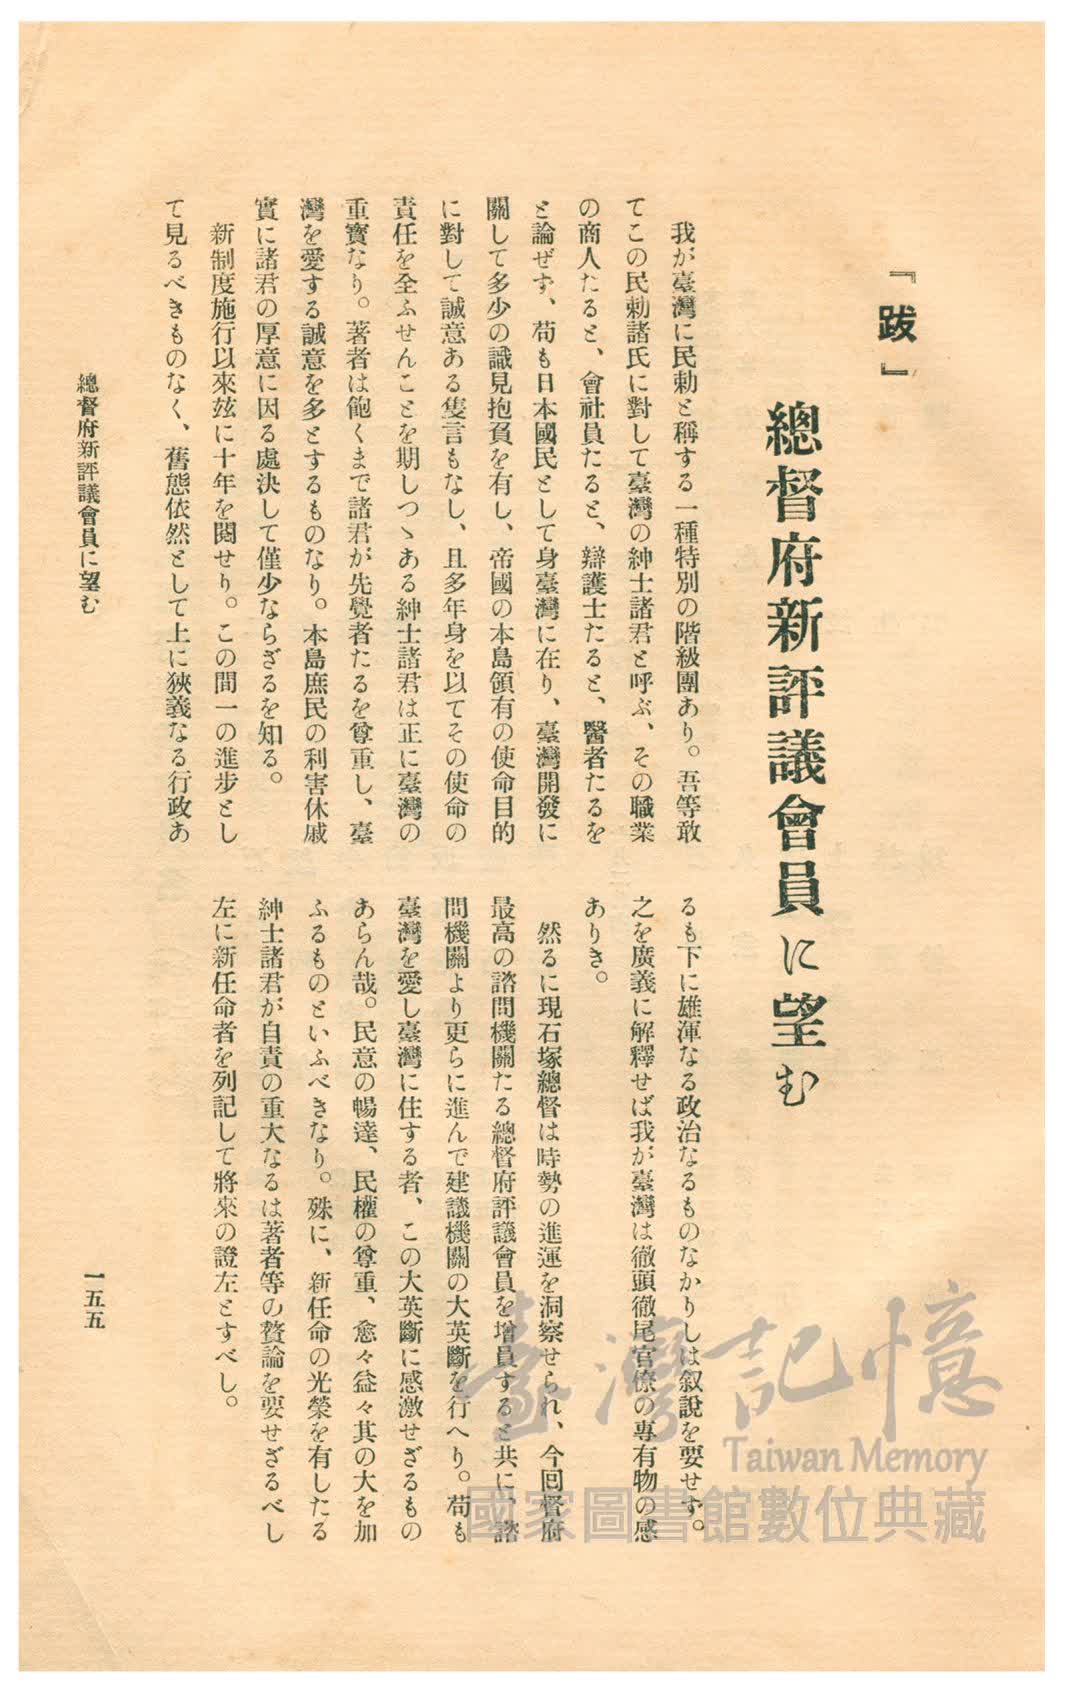 『跋』
總督府新評議會員に望む
我が臺灣に民勅と稱する一種特別の階級團あり。吾等敢
てこの民勅諸氏に對して臺灣の紳士諸君と呼ぶ、その職業
の商人たると、會社員たると、辯護士たると、醫者たるを
と論ぜず、苟も日本國民として身臺灣に在り、臺灣開發に
關して多少の識見抱負を有し、帝國の本島領有の使命目的
に對して誠意ある隻言もなし、且多年身を以てその使命の
責任を全ふせんことを期しつゝある紳士諸君は正に臺灣の
重寶なり。著者は飽くまで諸君が先覺者たるを尊重し、臺
灣を愛する誠意を多とするものなり。本島庶民の利害休戚
實に諸君の厚意に因る處決して僅少ならざるを知る。
新制度施行以來玆に十年を閲せり。この間一の進步とし
て見るべきものなく、舊態依然として上に狹義なる行政あ
るも下に雄渾なる政治なるものなかりしは叙說を要せず。
之を廣義に解釋せば我が臺灣は徹頭徹尾官僚の專有物の感
ありき。
然るに現石塚總督は時勢の進運を洞察せられ、今回督府
最高の諮問機關たる總督府評議會員を增員すると共に、諮
問機關より更らに進んで建議機關の大英斷を行へり。苟も
臺灣を愛し臺灣に住する者、この大英斷に感激せざるもの
あらん哉。民意の暢達、民權の尊重、愈々益々其の大を加
ふるものといふべきなり。殊に、新任命の光榮を有したる
紳士諸君が自責の重大なるは著者等の贅論を要せざるべし
左に新任命者を列記して將來の證左とすべし。
總督府新評議會員に望む
一五五
臺灣記憶
Taiwan Memory
國家圖書館數位典藏